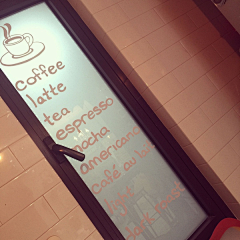 coffee
latte
tea
espresso
mocha
americano
café au lait
dark roast